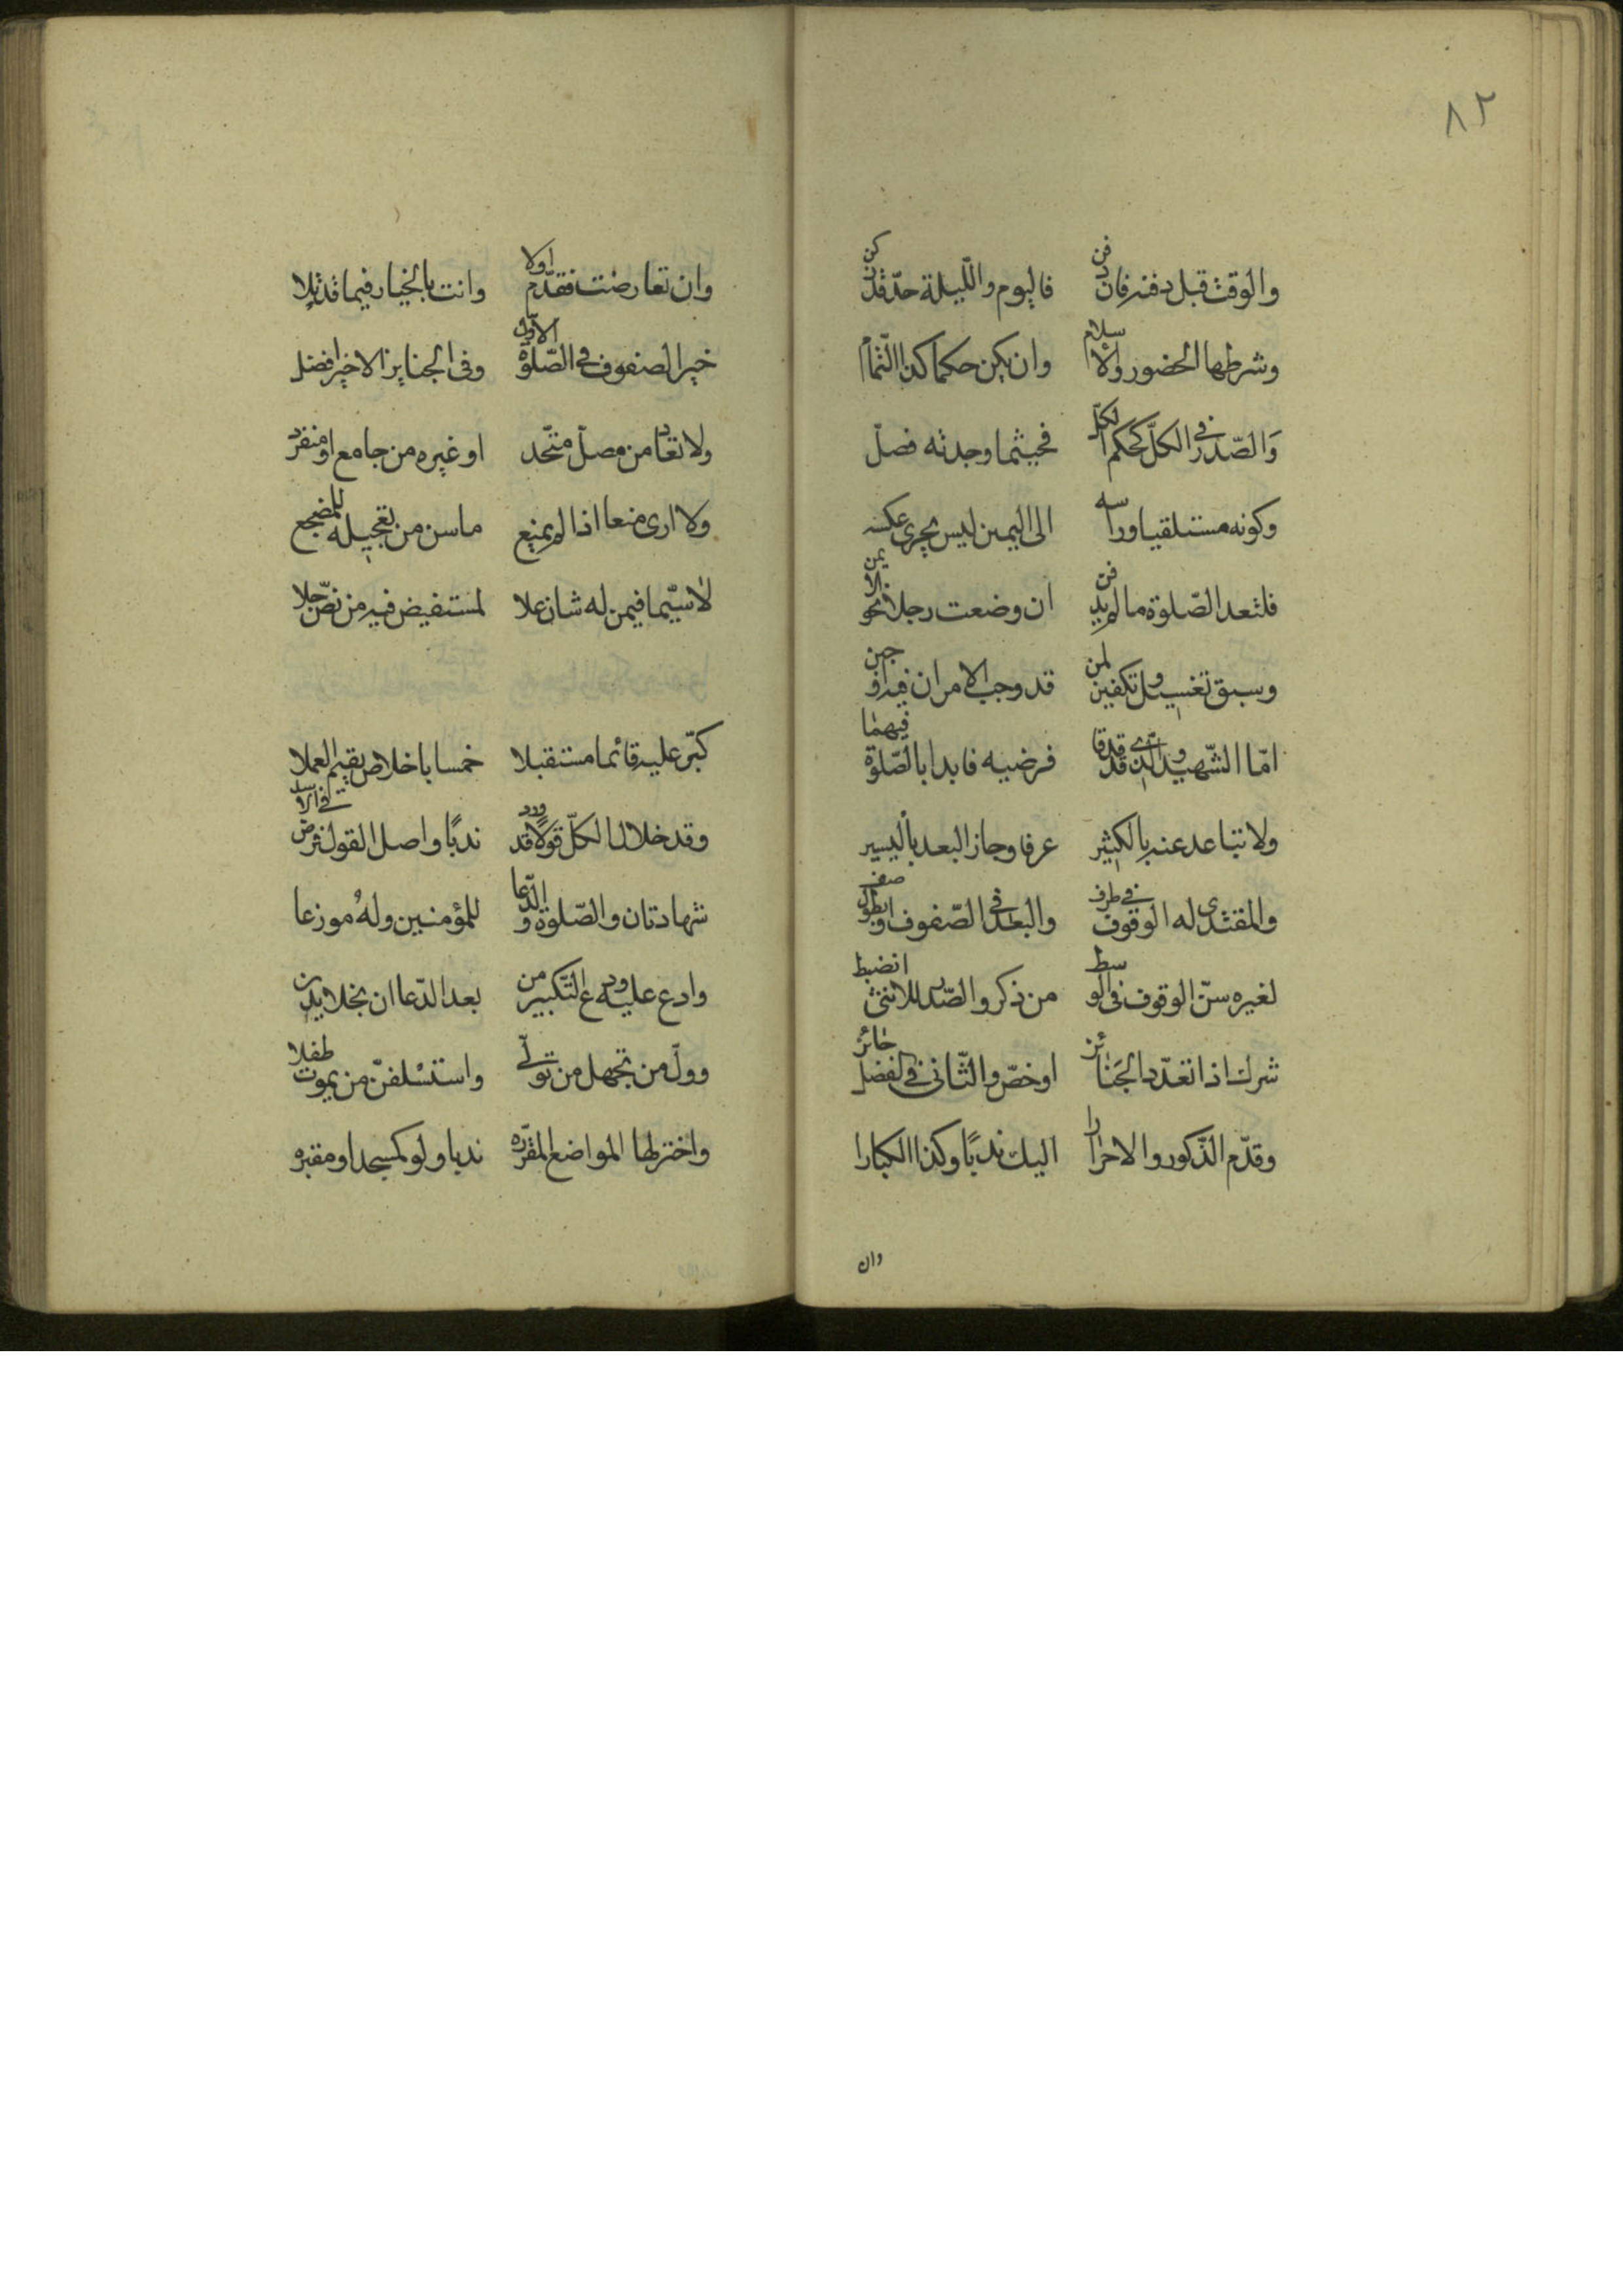 ٨٢
والوقت قبل دفنه فان دفن فاليوم والليلة حد قد زكن
وشرطها الحضور والاسلام وان يكن حكما كذا التمام
والصدر في الكل كحكم الكل فحيثما وجدته فصل
وكونه مستلقيا وراسه الى اليمين ليس يجري عكسه
فلتعد الصلوة ما لم يدفن ان وضعت رجلاه نحو الايمن
وسبق تغسيل وتكفين لمن قد وجب الامران فيه اوجبن
اما الشهيد والذي قد قدما فرضيه فابدا بالصلوة فيهما
ولا تباعد عنه بالكثير عرفا وجاز البعد باليسير
والمقتدى له الوقوف في طرف والبعد في الصفوف او بطول صف
لغيره سن الوقوف في الوسط من ذكر والصدر للانثى انضبط
شرك اذا تعدد الجنائز او خص والثاني لفضل حائز
وقدم الذكور والاحرارا اليك ندبا وكذا الكبارا
وان
وان تعارضت فقدم اولا وانت بالخيار فيما قد تلا
خير الصفوف في الصلوة الاول وفى الجنايز الاخير افضل
ولا تعاد من مصل متحد او غيره من جامع او منفرد
ولا ارى منعا اذا لم يمنع ماسن من تعجيله للمضجع
لا سيما فيمن له شان علا لمستفيض فيه من نص جلا
كبر عليه قائما مستقبلا خمسا باخلاص يقيم العملا
وقد خلال الكل قولا قد ورد ندبا واصل القول فرض في الاسد
شهادتان والصلوة والدعا للمؤمنين وله موزعا
وادع عليه ودع التكبير من بعد الدعا ان بخلا يدن
وول من تجهل من تولى واستسلفن من يموت طفلا
واختر لها المواضع المقرره ندبا ولو كمسجد او مقبره